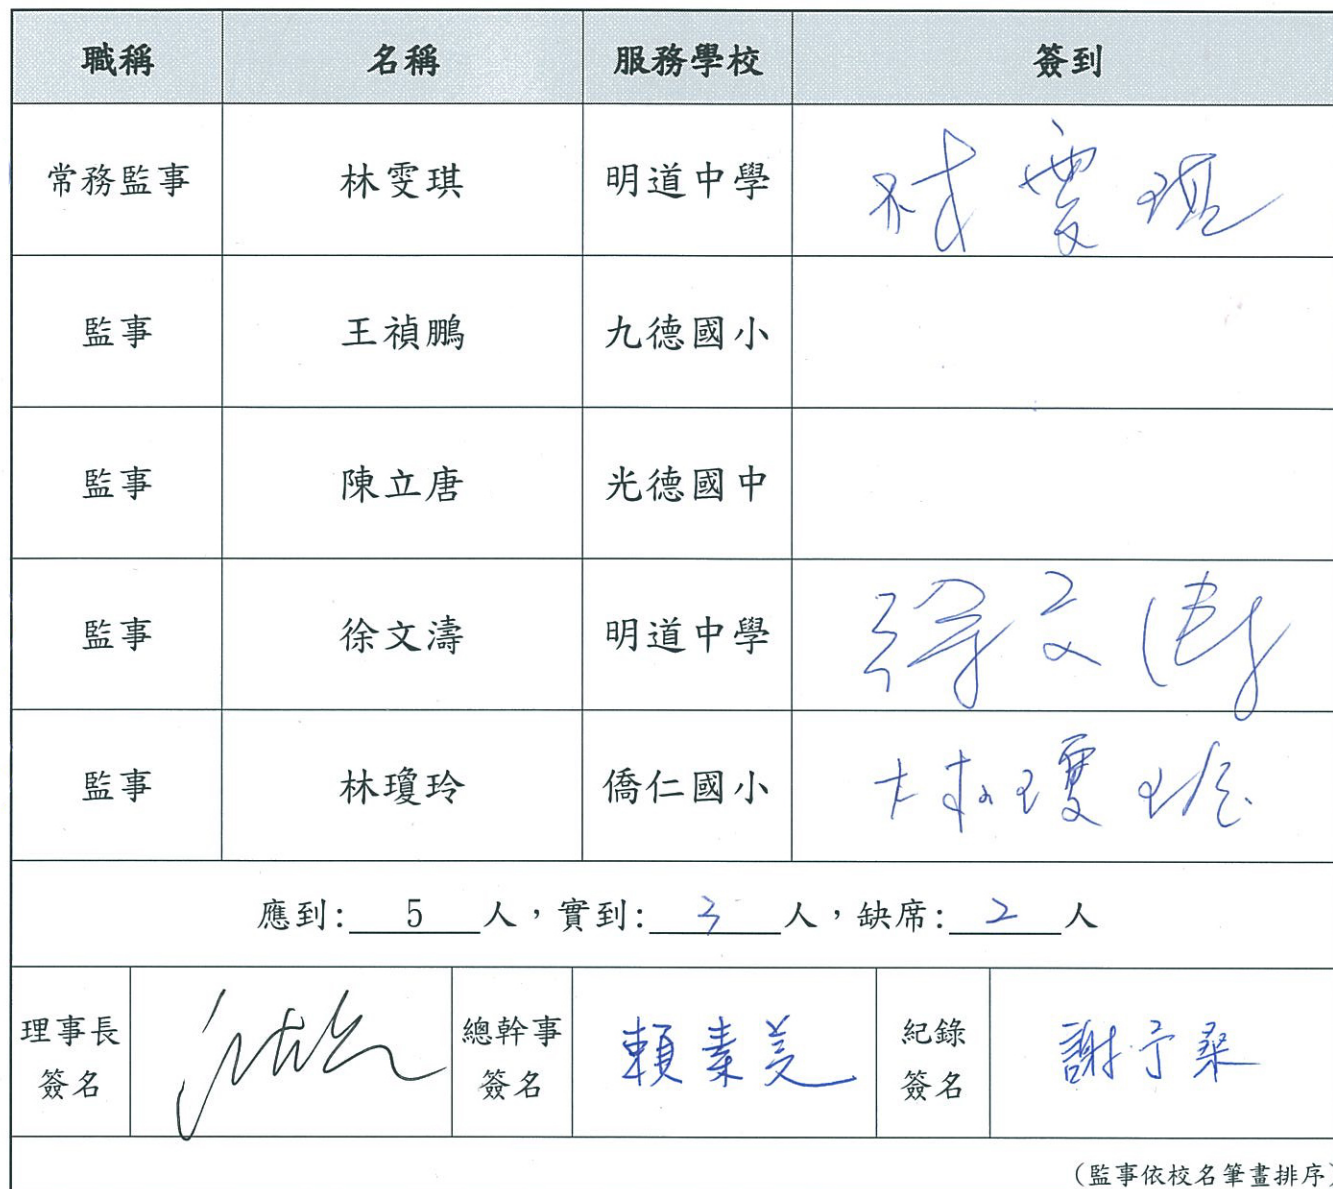 職稱 名稱 服務學校 簽到
常務監事 林雯琪 明道中學 林雯琪
監事 王禎鵬 九德國小
監事 陳立唐 光德國中
監事 徐文濤 明道中學 徐文濤
監事 林瓊玲 僑仁國小 林瓊玲
應到: 5 人，實到: 3 人，缺席: 2 人
理事長簽名 總幹事簽名 賴素美 紀錄簽名 謝予桑
(監事依校名筆畫排序)